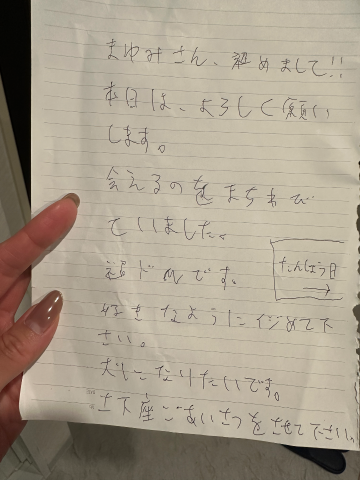 まゆみさん、初めまして!!
本日は、よろしく願い
します。
会えるのをまちわび
ていました。
ドMです。
たんじょう日
好きなようにイジめて下
さい。
犬になりたいです。
土下座ごあいさつをさせて下さい。